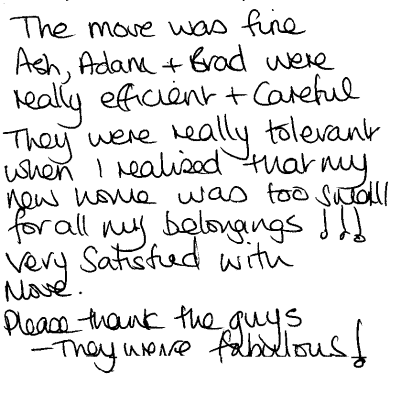 The move was fine
Ash, Adam + Brad were
really efficient + Careful
They were really tolerant
when I realised that my
new home was too small
for all my belongings !!!
very Satisfied with
Move.
Please thank the guys
- They were fabulous!